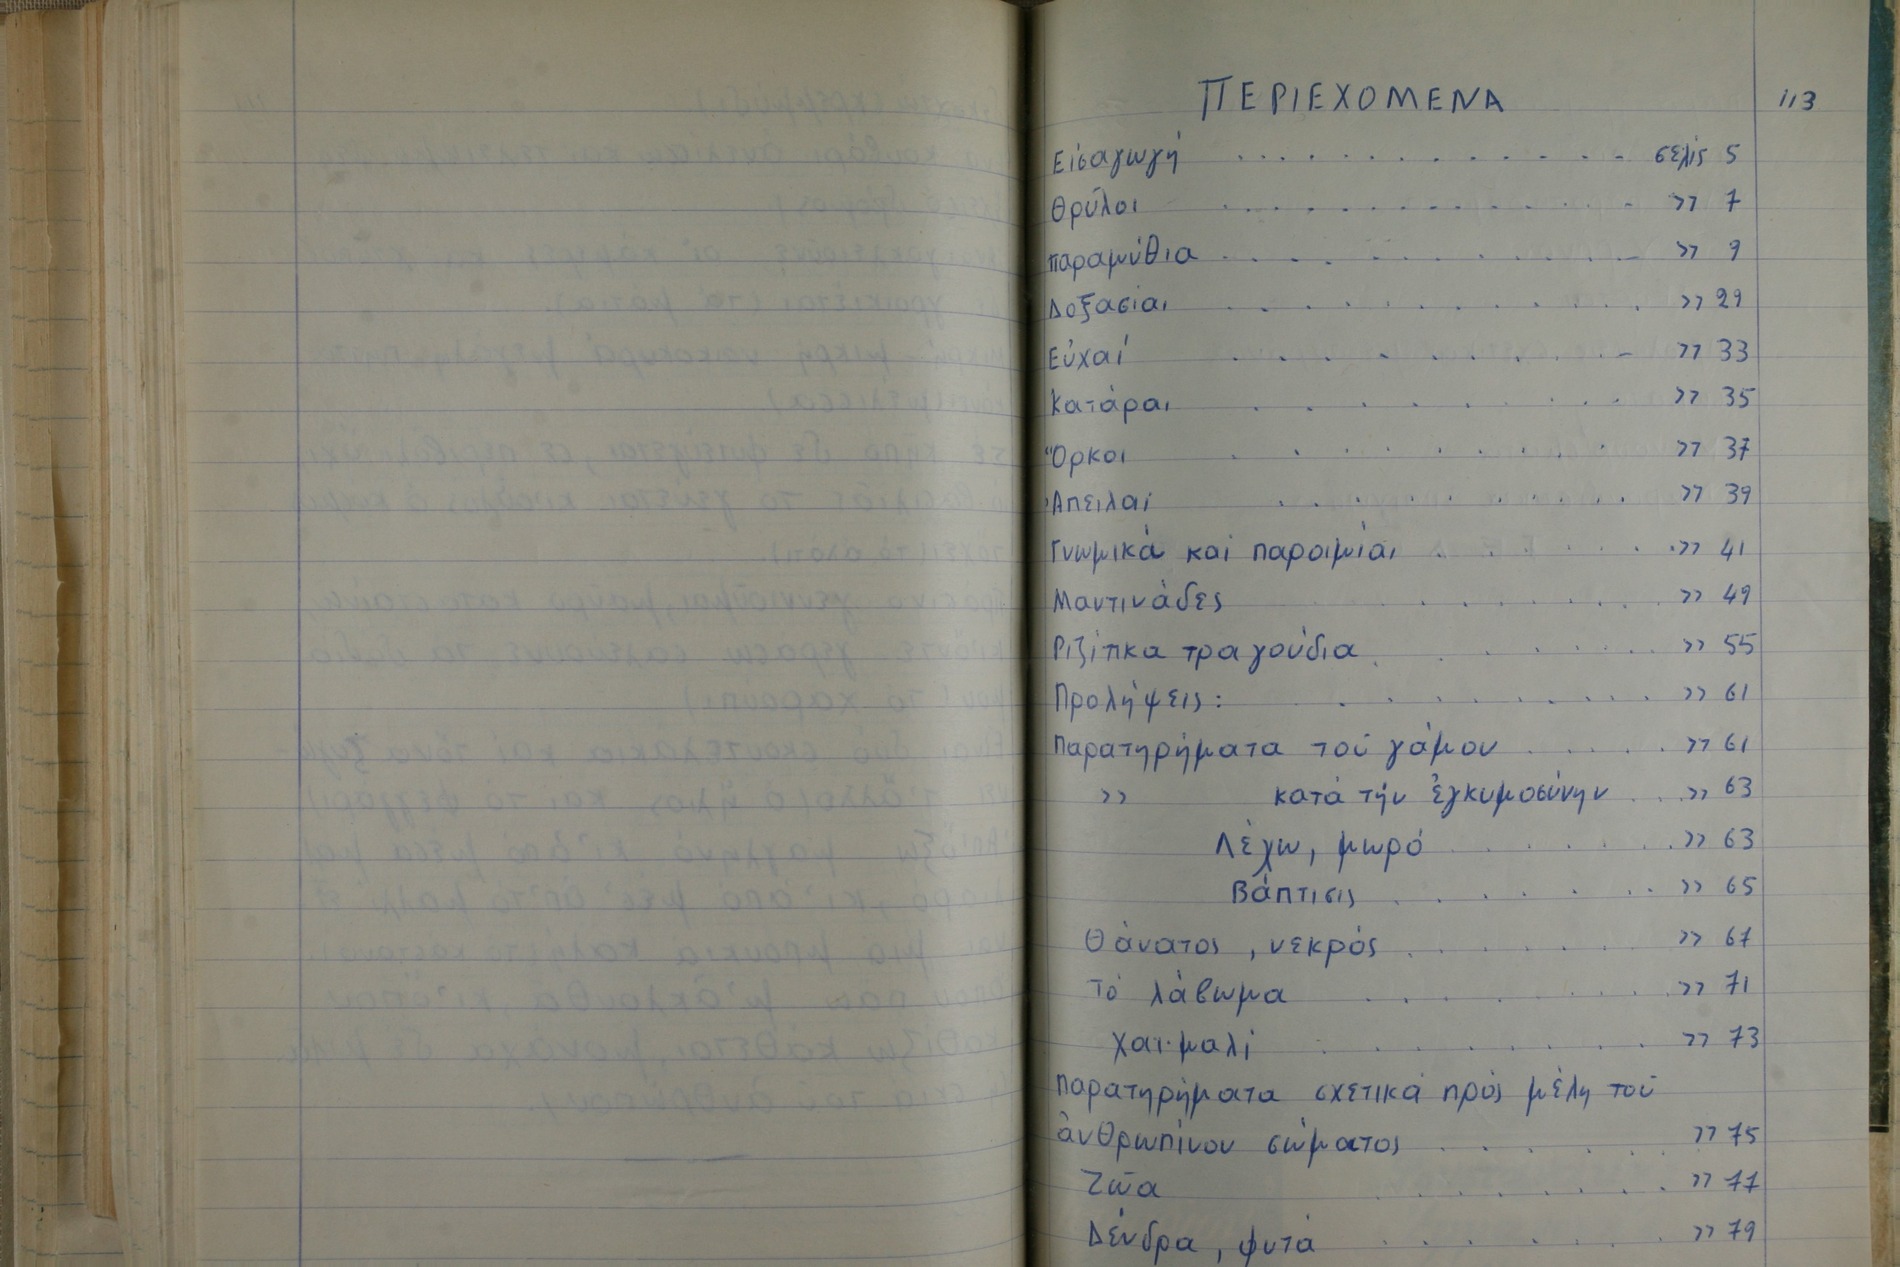 ΠΕΡΙΕΧΟΜΕΝΑ 113
Εἰσαγωγή . . . . . . . . . . . . σελίς 5
Θρύλοι . . . . . . . . . . . . . . ›› 7
Παραμύθια . . . . . . . . . . . . ›› 9
Δοξασίαι . . . . . . . . . . . . ›› 29
Εὐχαί . . . . . . . . . . ›› 33
Κατάραι . . . . . . . . . . ›› 35
Ὅρκοι . . . . . . . . . ›› 37
Ἀπειλαί . . . . . . . . . ›› 39
Γνωμικά καί παροιμίαι . . . . . . ›› 41
Μαντινάδες . . . . . . . . ›› 49
Ριζίτικα τραγούδια . . . . . . . ›› 55
Προλήψεις: . . . . . . . . . ›› 61
Παρατηρήματα τοῦ γάμου . . . . . ›› 61
›› κατά τήν ἐγκυμοσύνην . . . ›› 63
Λέχω, μωρό . . . . . . . ›› 63
Βάπτισις . . . . . . . ›› 65
Θάνατος, νεκρός . . . . . . . ›› 67
Τό λάβωμα . . . . . . . ›› 71
Χαϊμαλί . . . . . . . . ›› 73
Παρατηρήματα σχετικά πρός μέλη τοῦ
ἀνθρωπίνου σώματος . . . . . . . ›› 75
Ζῶα . . . . . . . . ›› 77
Δένδρα, φυτά . . . . . . . ›› 79